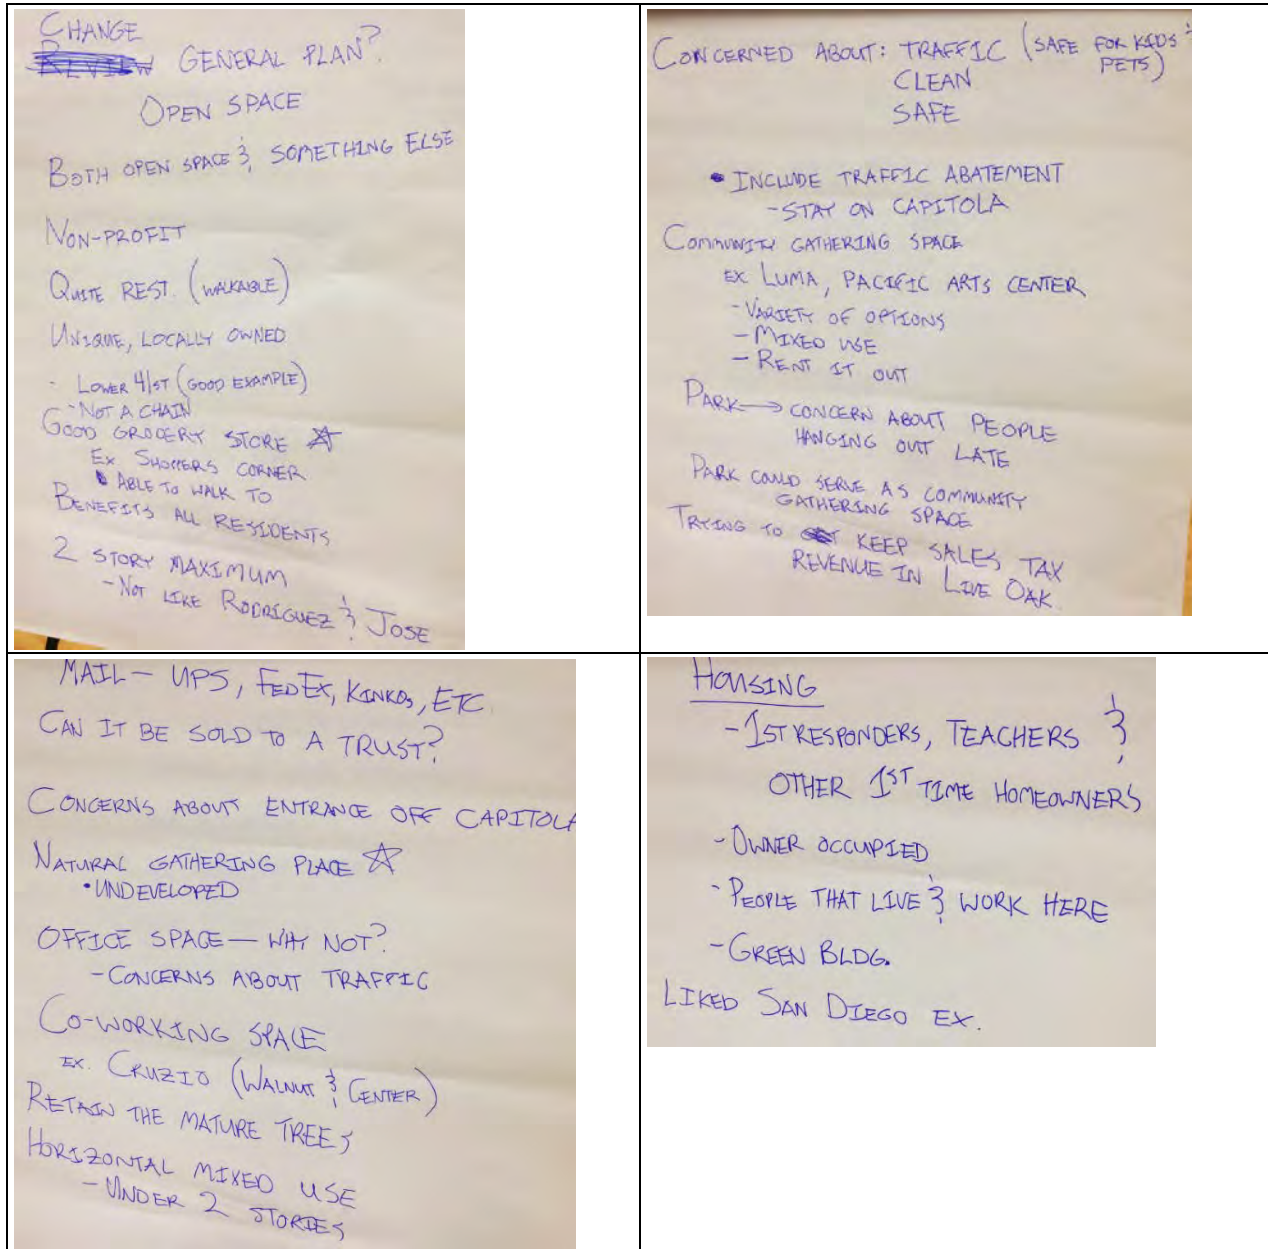 CHANGE
REVIEW GENERAL PLAN?
OPEN SPACE
BOTH OPEN SPACE & SOMETHING ELSE
NON-PROFIT
QUITE REST. (WALKABLE)
UNIQUE, LOCALLY OWNED
- LOWER 41ST (GOOD EXAMPLE)
- NOT A CHAIN
GOOD GROCERY STORE ☆
EX SHOPPERS CORNER
• ABLE TO WALK TO
BENEFITS ALL RESIDENTS
2 STORY MAXIMUM
- NOT LIKE RODRIGUEZ & JOSE
CONCERNED ABOUT: TRAFFIC (SAFE FOR KIDS &
PETS)
CLEAN
SAFE
• INCLUDE TRAFFIC ABATEMENT
- STAY ON CAPITOLA
COMMUNITY GATHERING SPACE
EX LUMA, PACIFIC ARTS CENTER
- VARIETY OF OPTIONS
- MIXED USE
- RENT IT OUT
PARK → CONCERN ABOUT PEOPLE
HANGING OUT LATE
PARK COULD SERVE AS COMMUNITY
GATHERING SPACE
TRYING TO KEEP SALES TAX
REVENUE IN LIVE OAK
MAIL - UPS, FEDEX, KINKOS, ETC
CAN IT BE SOLD TO A TRUST?
CONCERNS ABOUT ENTRANCE OFF CAPITOLA
NATURAL GATHERING PLACE ☆
• UNDEVELOPED
OFFICE SPACE - WHY NOT?
- CONCERNS ABOUT TRAFFIC
CO-WORKING SPACE
EX. CRUZIO (WALNUT & CENTER)
RETAIN THE MATURE TREES
HORIZONTAL MIXED USE
- UNDER 2 STORIES
HOUSING
- 1ST RESPONDERS, TEACHERS &
OTHER 1ST TIME HOMEOWNERS
- OWNER OCCUPIED
- PEOPLE THAT LIVE & WORK HERE
- GREEN BLDG.
LIKED SAN DIEGO EX.